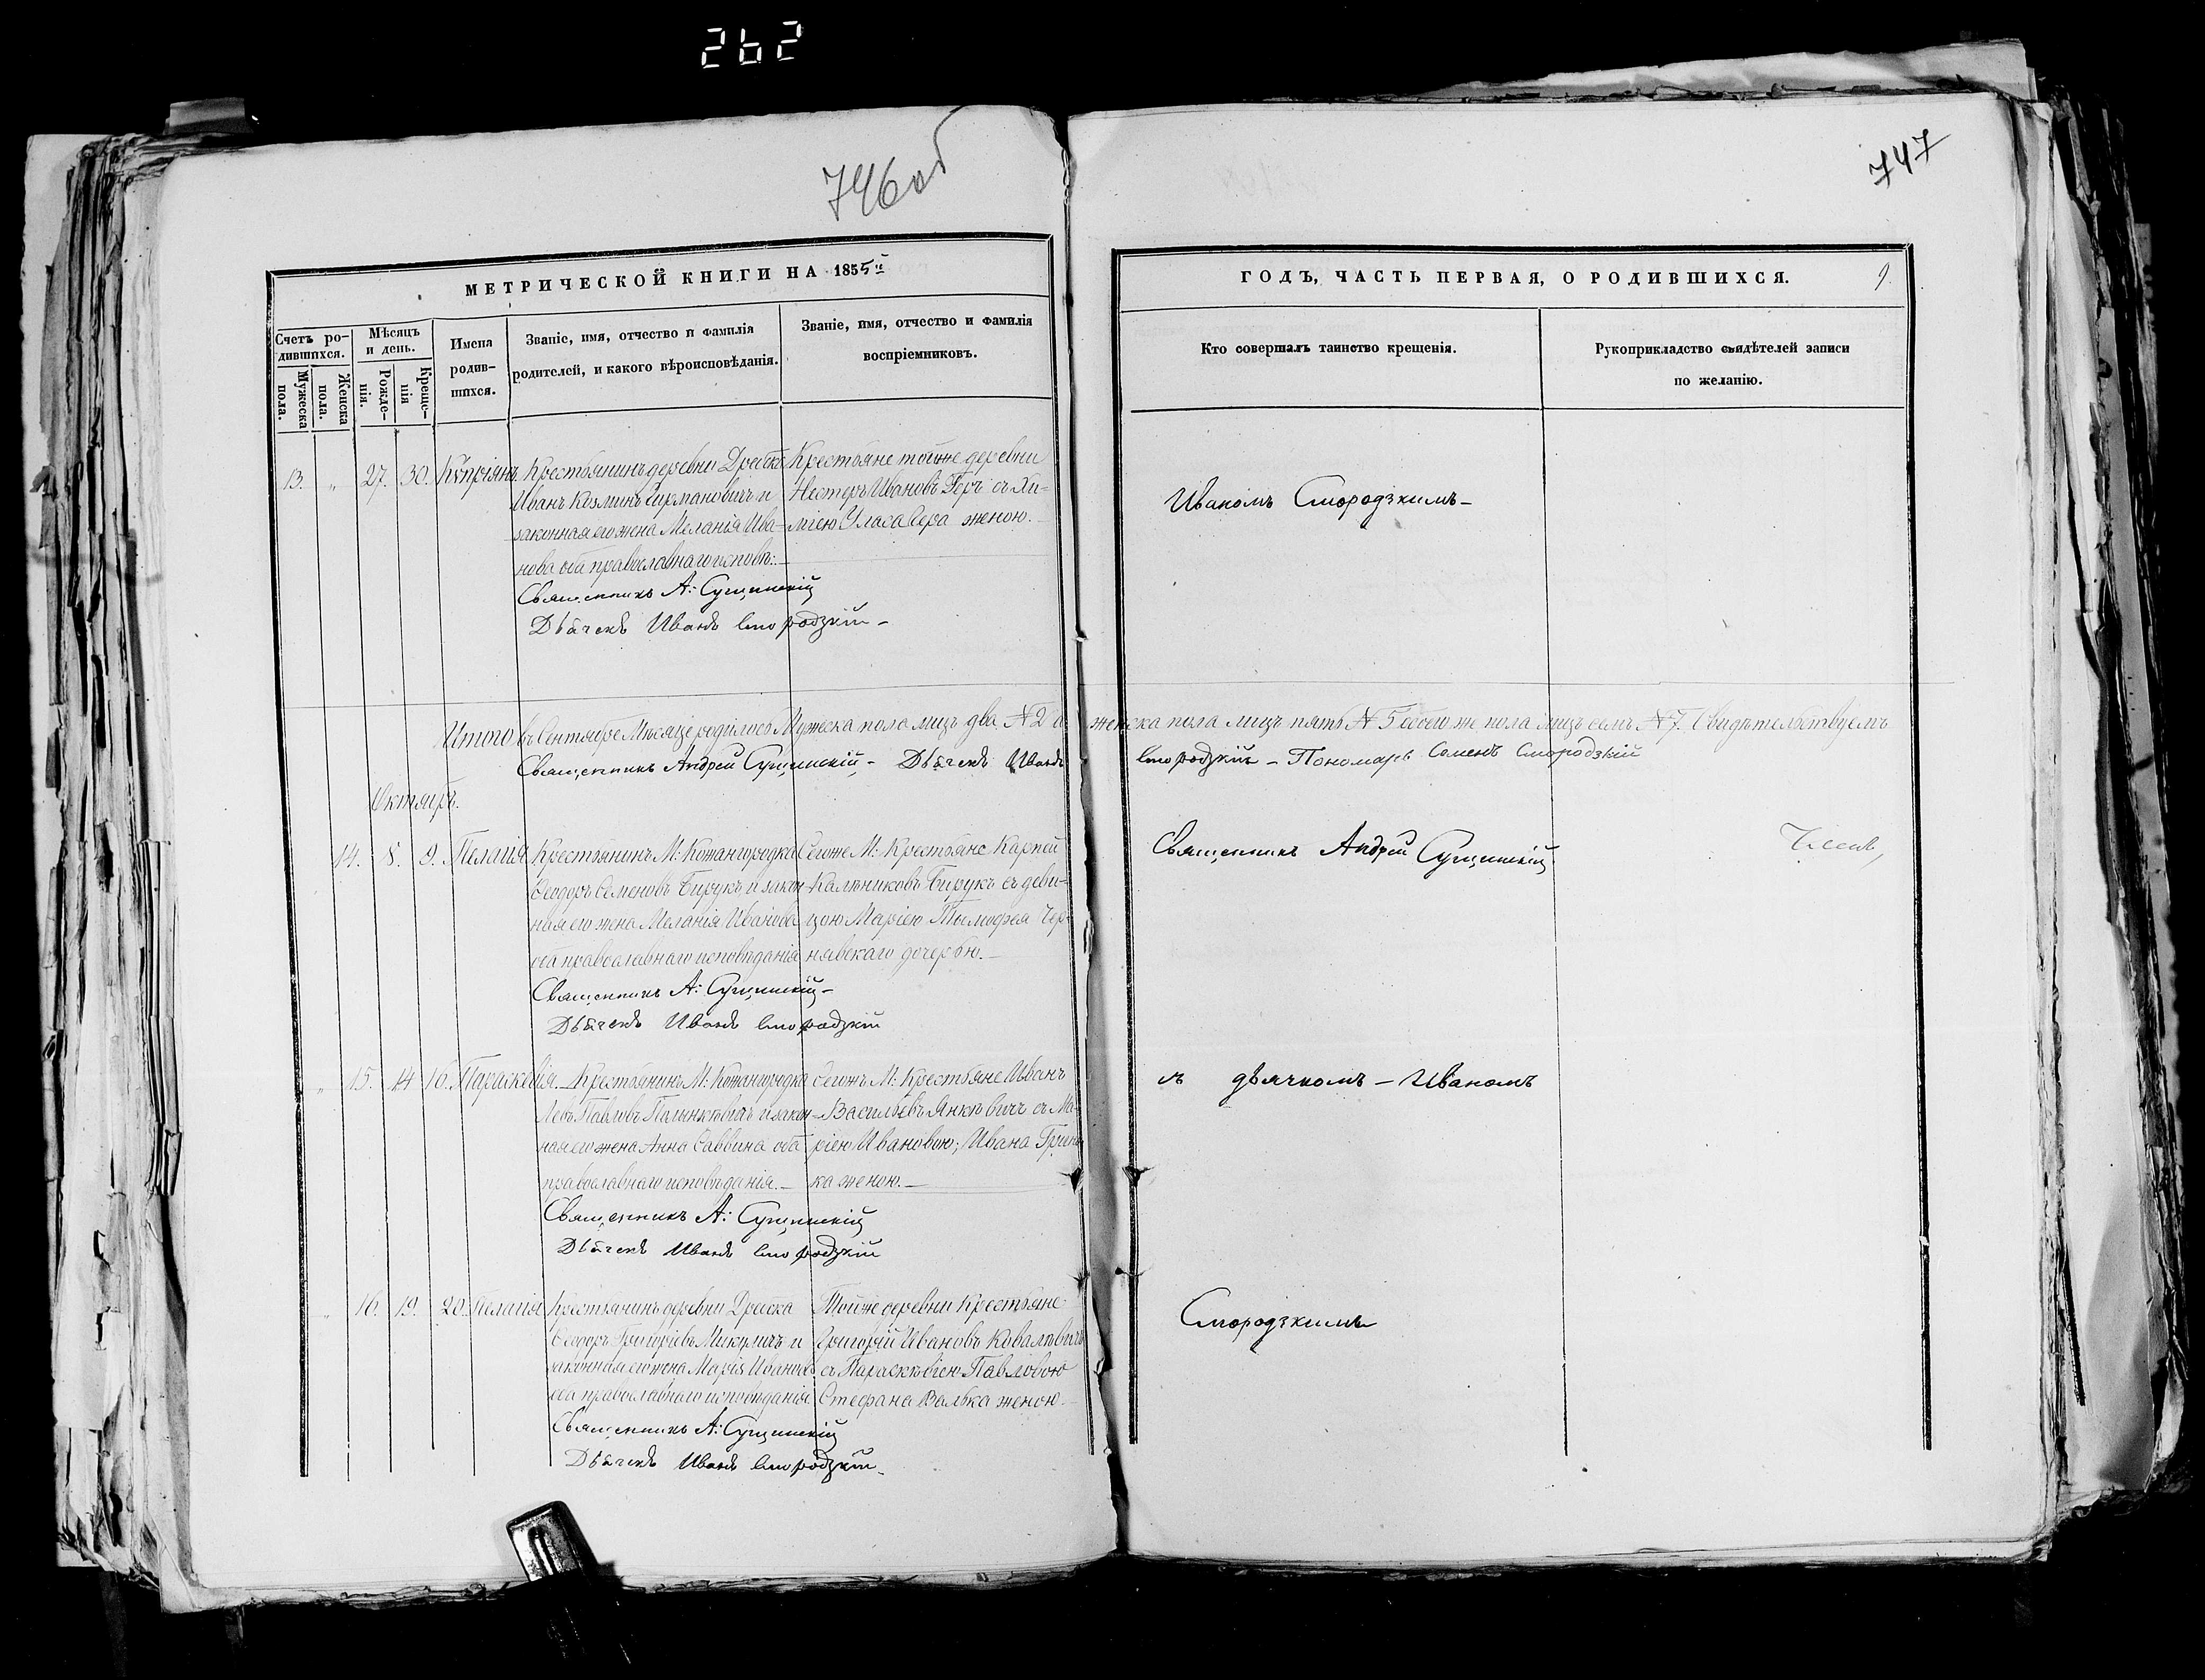 262
746об
747
МЕТРИЧЕСКОЙ КНИГИ НА 1855й
ГОДЪ, ЧАСТЬ ПЕРВАЯ, О РОДИВШИХСЯ.
9.
Счетъ ро-
дившихся.
Мужеска пола.
Женска пола.
Мѣсяцъ
и день.
Рожде-
нія.
Креще-
нія
Имена
родив-
шихся.
Званіе, имя, отчество и фамилія
родителей, и какого вѣроисповѣданія.
Званіе, имя, отчество и фамилія
воспріемниковъ.
Кто совершалъ таинство крещенія.
Рукоприкладство свидѣтелей записи
по желанію.
13. „ 27. 30. Кѵпріянъ.
Крестьянинъ деревни Дребска
Иванъ Козминъ и
законная его жена Меланія Ива-
нова оба православнаго исповѣ:
Священникъ А: Сущинскій
Дьячекъ Иванъ Смородзкій
Крестьяне тойже деревни
Несторъ Ивановъ Герч съ Хи-
мією Уласа женою.
Иваномъ Смородзкимъ
Итого въ Сентябре Месяце родилось Мужеска пола лицъ два N 2 а женска пола лицъ пять N 5 обоего же пола лицъ семь N 7. Свидетельствуемъ
Священникъ Андрей Сущинскій - Дьячекъ Иванъ Смородзкій - Пономарь Семенъ Смородзкій
Октябрь.
14. 8. 9. Пелагія
Крестьянинъ М: Кожангородка
Ѳеодоръ Семеновъ Бирукъ и закон-
ная его жена Меланія Иванова
оба православнаго исповѣданія
Священникъ А: Сущинскій
Дьячекъ Иванъ Смородзкій
Сегоже М: Крестьяне Карпей
Калѣниковъ Бирукъ съ деви-
цою Марією Тымофея Чер-
нявскаго дочерью.
Священникъ Андрей Сущинскій
„ 15. 14 16. Параскевія.
Крестьянинъ М: Кожангородка
Левъ Павловъ и закон-
ная его жена Анна Саввина оба
православнаго исповѣданія.
Священникъ А: Сущинскій
Дьячекъ Иванъ Смородзкій
Сегожъ М: Крестьяне Иванъ
Васильевъ Янкѣвичъ съ Ма-
рією Ивановою, Ивана Грин-
ка женою.
съ дьячкомъ - Иваномъ
„ 16. 19. 20. Пелагія
Крестьянинъ деревни Дребска
Ѳеодоръ Григоріевъ Микуличъ и
законная его жена Марія Иванова
оба православнаго исповѣданія
Священникъ А: Сущинскій
Дьячекъ Иванъ Смородзкій
Тойже деревни Крестьяне
Григорій Ивановъ Ковалѣвичъ
съ Параскѣвією Павловою
Стефана Валька женою.
Смородзкимъ